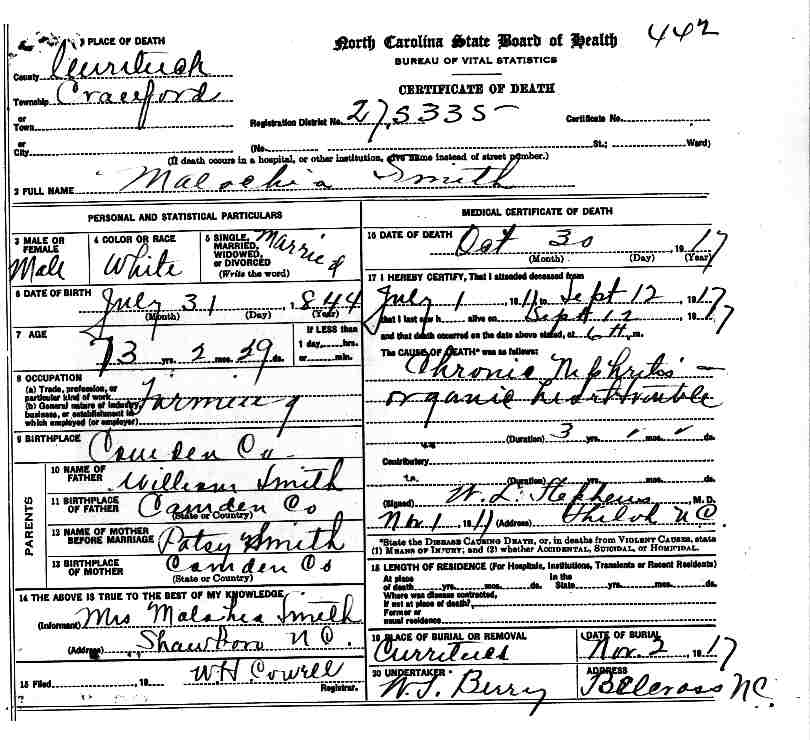 442
1 PLACE OF DEATH
North Carolina State Board of Health
BUREAU OF VITAL STATISTICS
CERTIFICATE OF DEATH
County Currituck
Township Crawford
or
Town
Registration District No. 275335 Certificate No.
or
City (No. St.; Ward)
(If death occurs in a hospital, or other institution, give name instead of street number.)
2 FULL NAME Malachia Smith
PERSONAL AND STATISTICAL PARTICULARS
3 MALE OR FEMALE Male
4 COLOR OR RACE White
5 SINGLE, MARRIED, WIDOWED, or DIVORCED (Write the word) Married
6 DATE OF BIRTH July 31 1844
(Month) (Day) (Year)
7 AGE 73 yrs. 2 mos. 29 ds.
If LESS than 1 day, hrs. or min.
8 OCCUPATION
(a) Trade, profession, or particular kind of work
(b) General nature of industry, business, or establishment in which employed (or employer)
Farming
9 BIRTHPLACE Camden Co
PARENTS
10 NAME OF FATHER William Smith
11 BIRTHPLACE OF FATHER Camden Co
(State or Country)
12 NAME OF MOTHER BEFORE MARRIAGE Patsy Smith
13 BIRTHPLACE OF MOTHER Camden Co
(State or Country)
14 THE ABOVE IS TRUE TO THE BEST OF MY KNOWLEDGE
(Informant) Mrs Malachia Smith
(Address) Shawboro N C.
15 Filed , 19 W H Cowell
Registrar.
MEDICAL CERTIFICATE OF DEATH
16 DATE OF DEATH Oct 30 1917
(Month) (Day) (Year)
17 I HEREBY CERTIFY, That I attended deceased from
July 1 to Sept 12, 1917
that I last saw h alive on Sept 12, 1917
and that death occurred on the date above stated, at 6 m.
The CAUSE OF DEATH* was as follows:
Chronic Nephritis -
organic heart trouble
(Duration) 3 yrs. mos. ds.
Contributory
(Duration) yrs. mos. ds.
(Signed) W. L. Stephens, M. D.
Nov 1 (Address) Shiloh N C.
*State the DISEASE CAUSING DEATH, or, in deaths from VIOLENT CAUSES, state
(1) MEANS OF INJURY; and (2) whether ACCIDENTAL, SUICIDAL, or HOMICIDAL.
18 LENGTH OF RESIDENCE (For Hospitals, Institutions, Transients or Recent Residents)
At place of death yrs. mos. ds. In the State yrs. mos. ds.
Where was disease contracted,
If not at place of death?
Former or
usual residence
19 PLACE OF BURIAL OR REMOVAL Currituck
DATE OF BURIAL Nov. 2, 1917
20 UNDERTAKER W. S. Berry
ADDRESS Belcross N C.